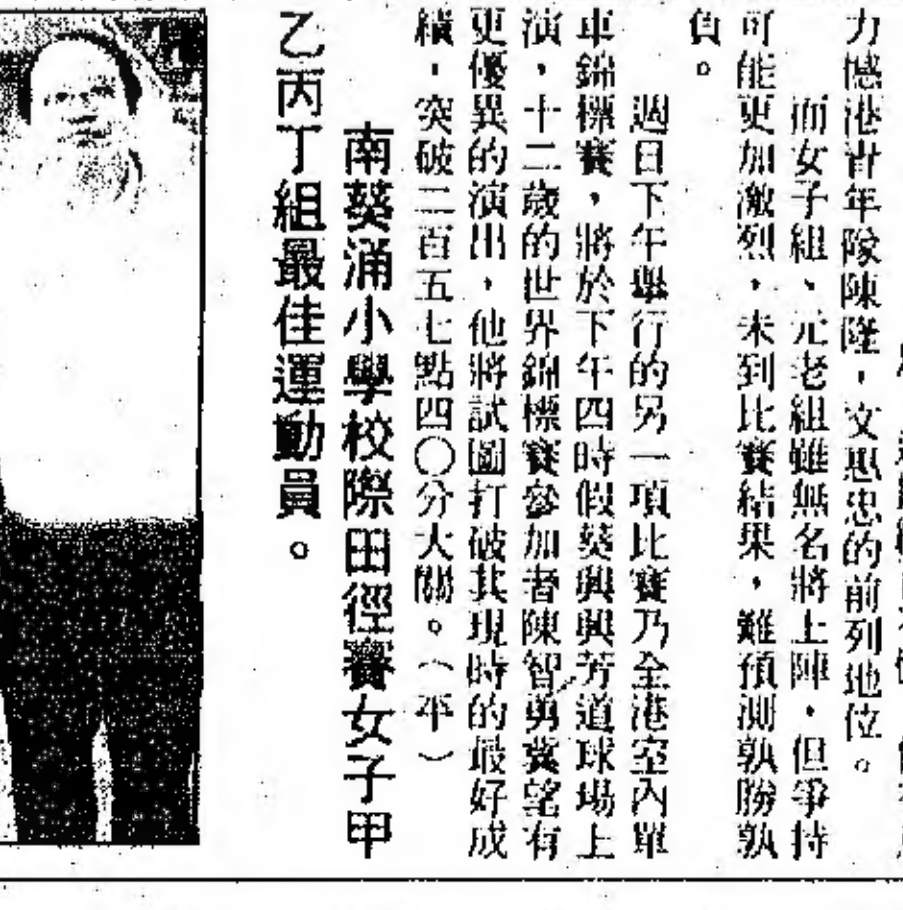 力憾港青年隊陳隆，文思忠的前列地位。
而女子組、元老組雖無名將上陣，但爭持
可能更加激烈，未到比賽結果，難預測孰勝孰
負。
週日下午舉行的另一項比賽乃全港室內單
車錦標賽，將於下午四時假葵興興芳道球場上
演，十二歲的世界錦標賽參加者陳智勇冀望有
更優異的演出，他將試圖打破其現時的最好成
績，突破二百五七點四〇分大關。（平）
南葵涌小學校際田徑賽女子甲
乙丙丁組最佳運動員。